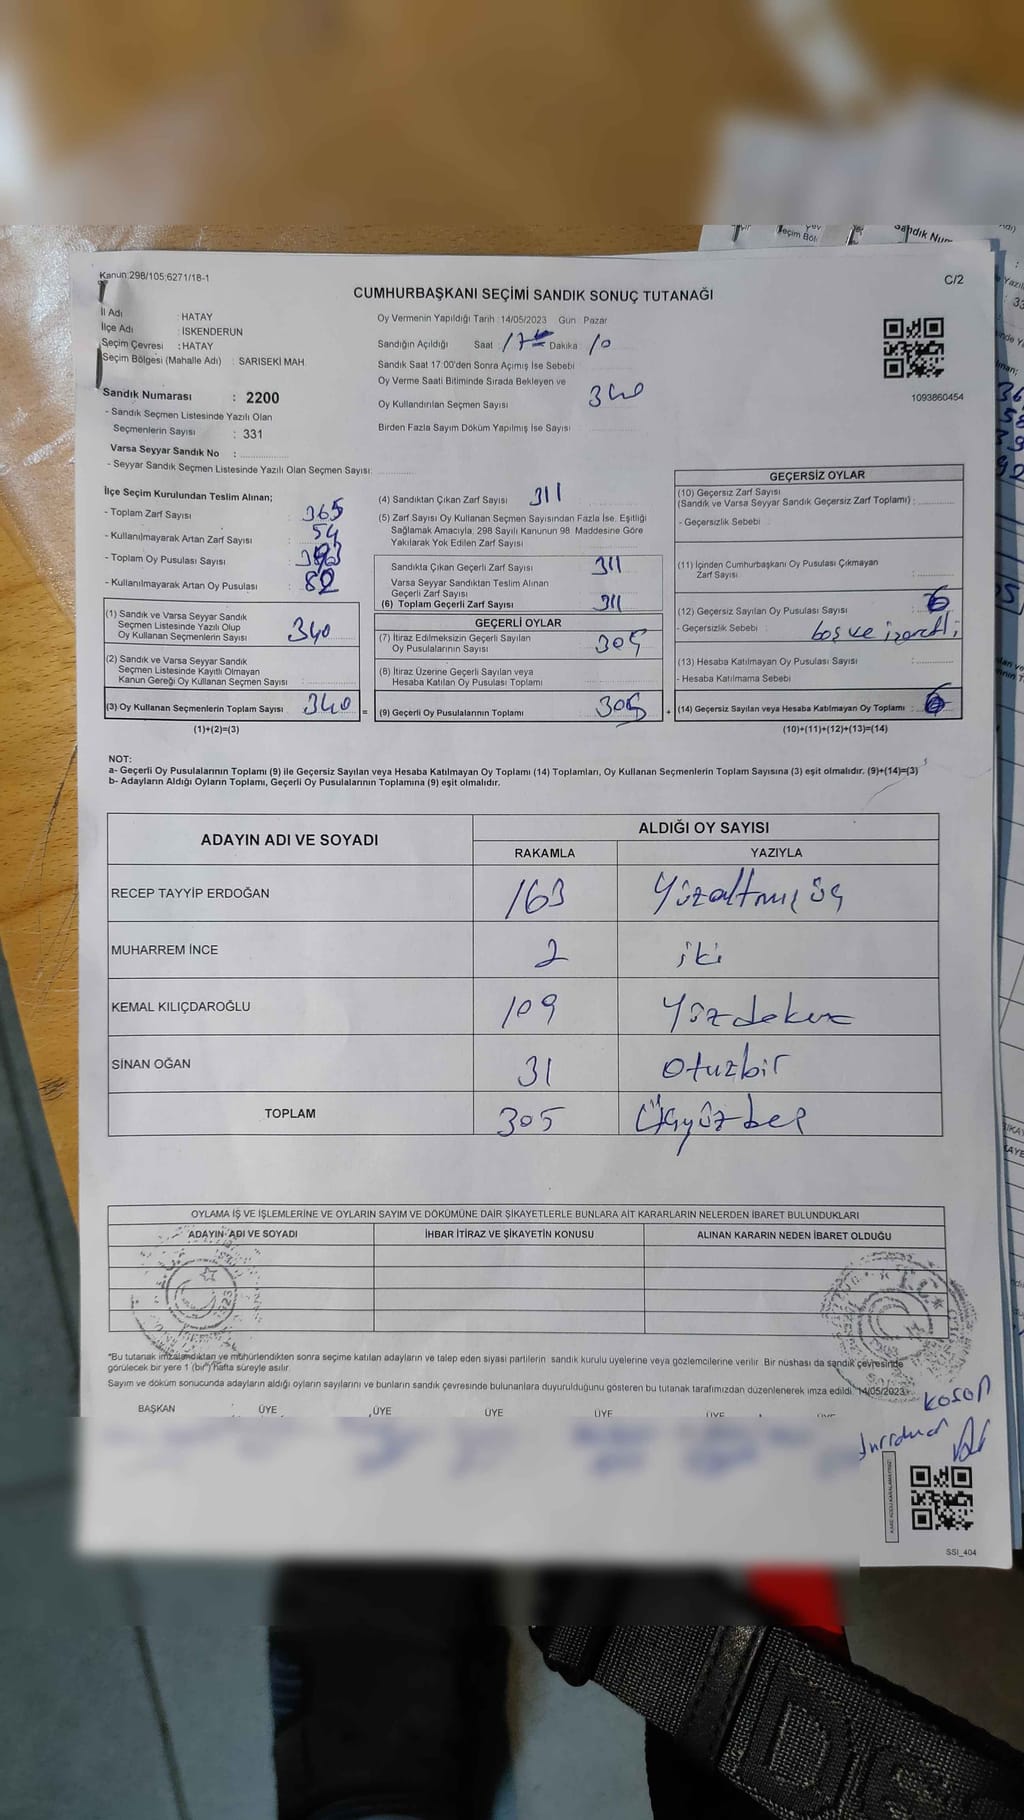 Kanun:298/105;6271/18-1
C/2
CUMHURBAŞKANI SEÇİMİ SANDIK SONUÇ TUTANAĞI
İl Adı : HATAY
İlçe Adı : İSKENDERUN
Seçim Çevresi : HATAY
Seçim Bölgesi (Mahalle Adı) : SARISEKİ MAH.
Sandık Numarası : 2200
- Sandık Seçmen Listesinde Yazılı Olan
Seçmenlerin Sayısı : 331
Varsa Seyyar Sandık No :
- Seyyar Sandık Seçmen Listesinde Yazılı Olan Seçmen Sayısı:
Oy Vermenin Yapıldığı Tarih : 14/05/2023 Gün : Pazar
Sandığın Açıldığı Saat : 17 Dakika 10
Sandık Saat 17:00'den Sonra Açımış İse Sebebi
Oy Verme Saati Bitiminde Sırada Bekleyen ve
Oy Kullandırılan Seçmen Sayısı 340
Birden Fazla Sayım Döküm Yapılmış İse Sayısı
1093860454
İlçe Seçim Kurulundan Teslim Alınan;
- Toplam Zarf Sayısı : 365
- Kullanılmayarak Artan Zarf Sayısı : 54
- Toplam Oy Pusulası Sayısı :
- Kullanılmayarak Artan Oy Pusulası : 82
(1) Sandık ve Varsa Seyyar Sandık
Seçmen Listesinde Yazılı Olup
Oy Kullanan Seçmenlerin Sayısı 340
(2) Sandık ve Varsa Seyyar Sandık
Seçmen Listesinde Kayıtlı Olmayan
Kanun Gereği Oy Kullanan Seçmen Sayısı :
(3) Oy Kullanan Seçmenlerin Toplam Sayısı : 340 =
(1)+(2)=(3)
(4) Sandıktan Çıkan Zarf Sayısı : 311
(5) Zarf Sayısı Oy Kullanan Seçmen Sayısından Fazla İse, Eşitliği
Sağlamak Amacıyla, 298 Sayılı Kanunun 98. Maddesine Göre
Yakılarak Yok Edilen Zarf Sayısı
Sandıkta Çıkan Geçerli Zarf Sayısı 311
Varsa Seyyar Sandıktan Teslim Alınan
Geçerli Zarf Sayısı
(6) Toplam Geçerli Zarf Sayısı 311
GEÇERLİ OYLAR
(7) İtiraz Edilmeksizin Geçerli Sayılan
Oy Pusulalarının Sayısı 305
(8) İtiraz Üzerine Geçerli Sayılan veya
Hesaba Katılan Oy Pusulası Toplamı
(9) Geçerli Oy Pusulalarının Toplamı 305 +
GEÇERSİZ OYLAR
(10) Geçersiz Zarf Sayısı
(Sandık ve Varsa Seyyar Sandık Geçersiz Zarf Toplamı) :
- Geçersizlik Sebebi :
(11) İçinden Cumhurbaşkanı Oy Pusulası Çıkmayan
Zarf Sayısı
(12) Geçersiz Sayılan Oy Pusulası Sayısı : 6
- Geçersizlik Sebebi : boş ve
(13) Hesaba Katılmayan Oy Pusulası Sayısı :
- Hesaba Katılmama Sebebi
(14) Geçersiz Sayılan veya Hesaba Katılmayan Oy Toplamı : 6
(10)+(11)+(12)+(13)=(14)
NOT:
a- Geçerli Oy Pusulalarının Toplamı (9) ile Geçersiz Sayılan veya Hesaba Katılmayan Oy Toplamı (14) Toplamları, Oy Kullanan Seçmenlerin Toplam Sayısına (3) eşit olmalıdır. (9)+(14)=(3)
b- Adayların Aldığı Oyların Toplamı, Geçerli Oy Pusulalarının Toplamına (9) eşit olmalıdır.
ADAYIN ADI VE SOYADI
ALDIĞI OY SAYISI
RAKAMLA YAZIYLA
RECEP TAYYİP ERDOĞAN 163 Yüzaltmış üç
MUHARREM İNCE 2 iki
KEMAL KILIÇDAROĞLU 109 Yüzdokuz
SİNAN OĞAN 31 Otuzbir
TOPLAM 305 Üçyüzbeş
OYLAMA İŞ VE İŞLEMLERİNE VE OYLARIN SAYIM VE DÖKÜMÜNE DAİR ŞİKAYETLERLE BUNLARA AİT KARARLARIN NELERDEN İBARET BULUNDUKLARI
ADAYIN ADI VE SOYADI İHBAR İTİRAZ VE ŞİKAYETİN KONUSU ALINAN KARARIN NEDEN İBARET OLDUĞU
*Bu tutanak imzalandıktan ve mühürlendikten sonra seçime katılan adayların ve talep eden siyasi partilerin sandık kurulu üyelerine veya gözlemcilerine verilir. Bir nüshası da sandık çevresinde
görülecek bir yere 1 (bir) hafta süreyle asılır.
Sayım ve döküm sonucunda adayların aldığı oyların sayılarını ve bunların sandık çevresinde bulunanlara duyurulduğunu gösteren bu tutanak tarafımızdan düzenlenerek imza edildi. 14/05/2023
BAŞKAN ÜYE ÜYE ÜYE ÜYE ÜYE
SSI_404